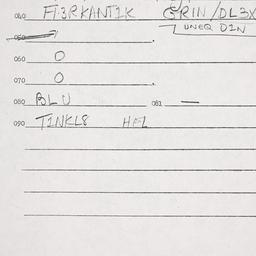 040 FI3RKANT1K GRIN/DL3X
UNEQ D1N
050
060 O
070 O
080 BLU 081 —
090 T1NKL8 HFL